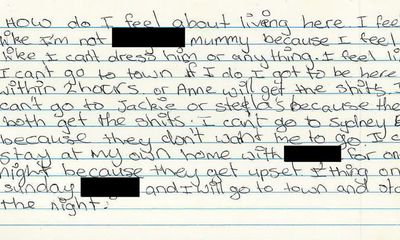 HOW do I feel about liveng here I feel
like I'm not mummy because I feel
like I can't dress him or anything. I feel li
I can't go to town If I do I got to be here
within 2 hours or Anne will get the shits. I
can't go to Jackie or stella's because the
both get the shits. I can't go to Sydney
because they don't want me to go. I c
stay at my own home with for on
night because they get upset I thing on
sunday and I will go to town and sta
the night.